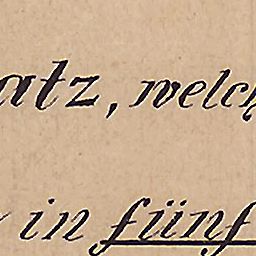 atz, welch
in fünf